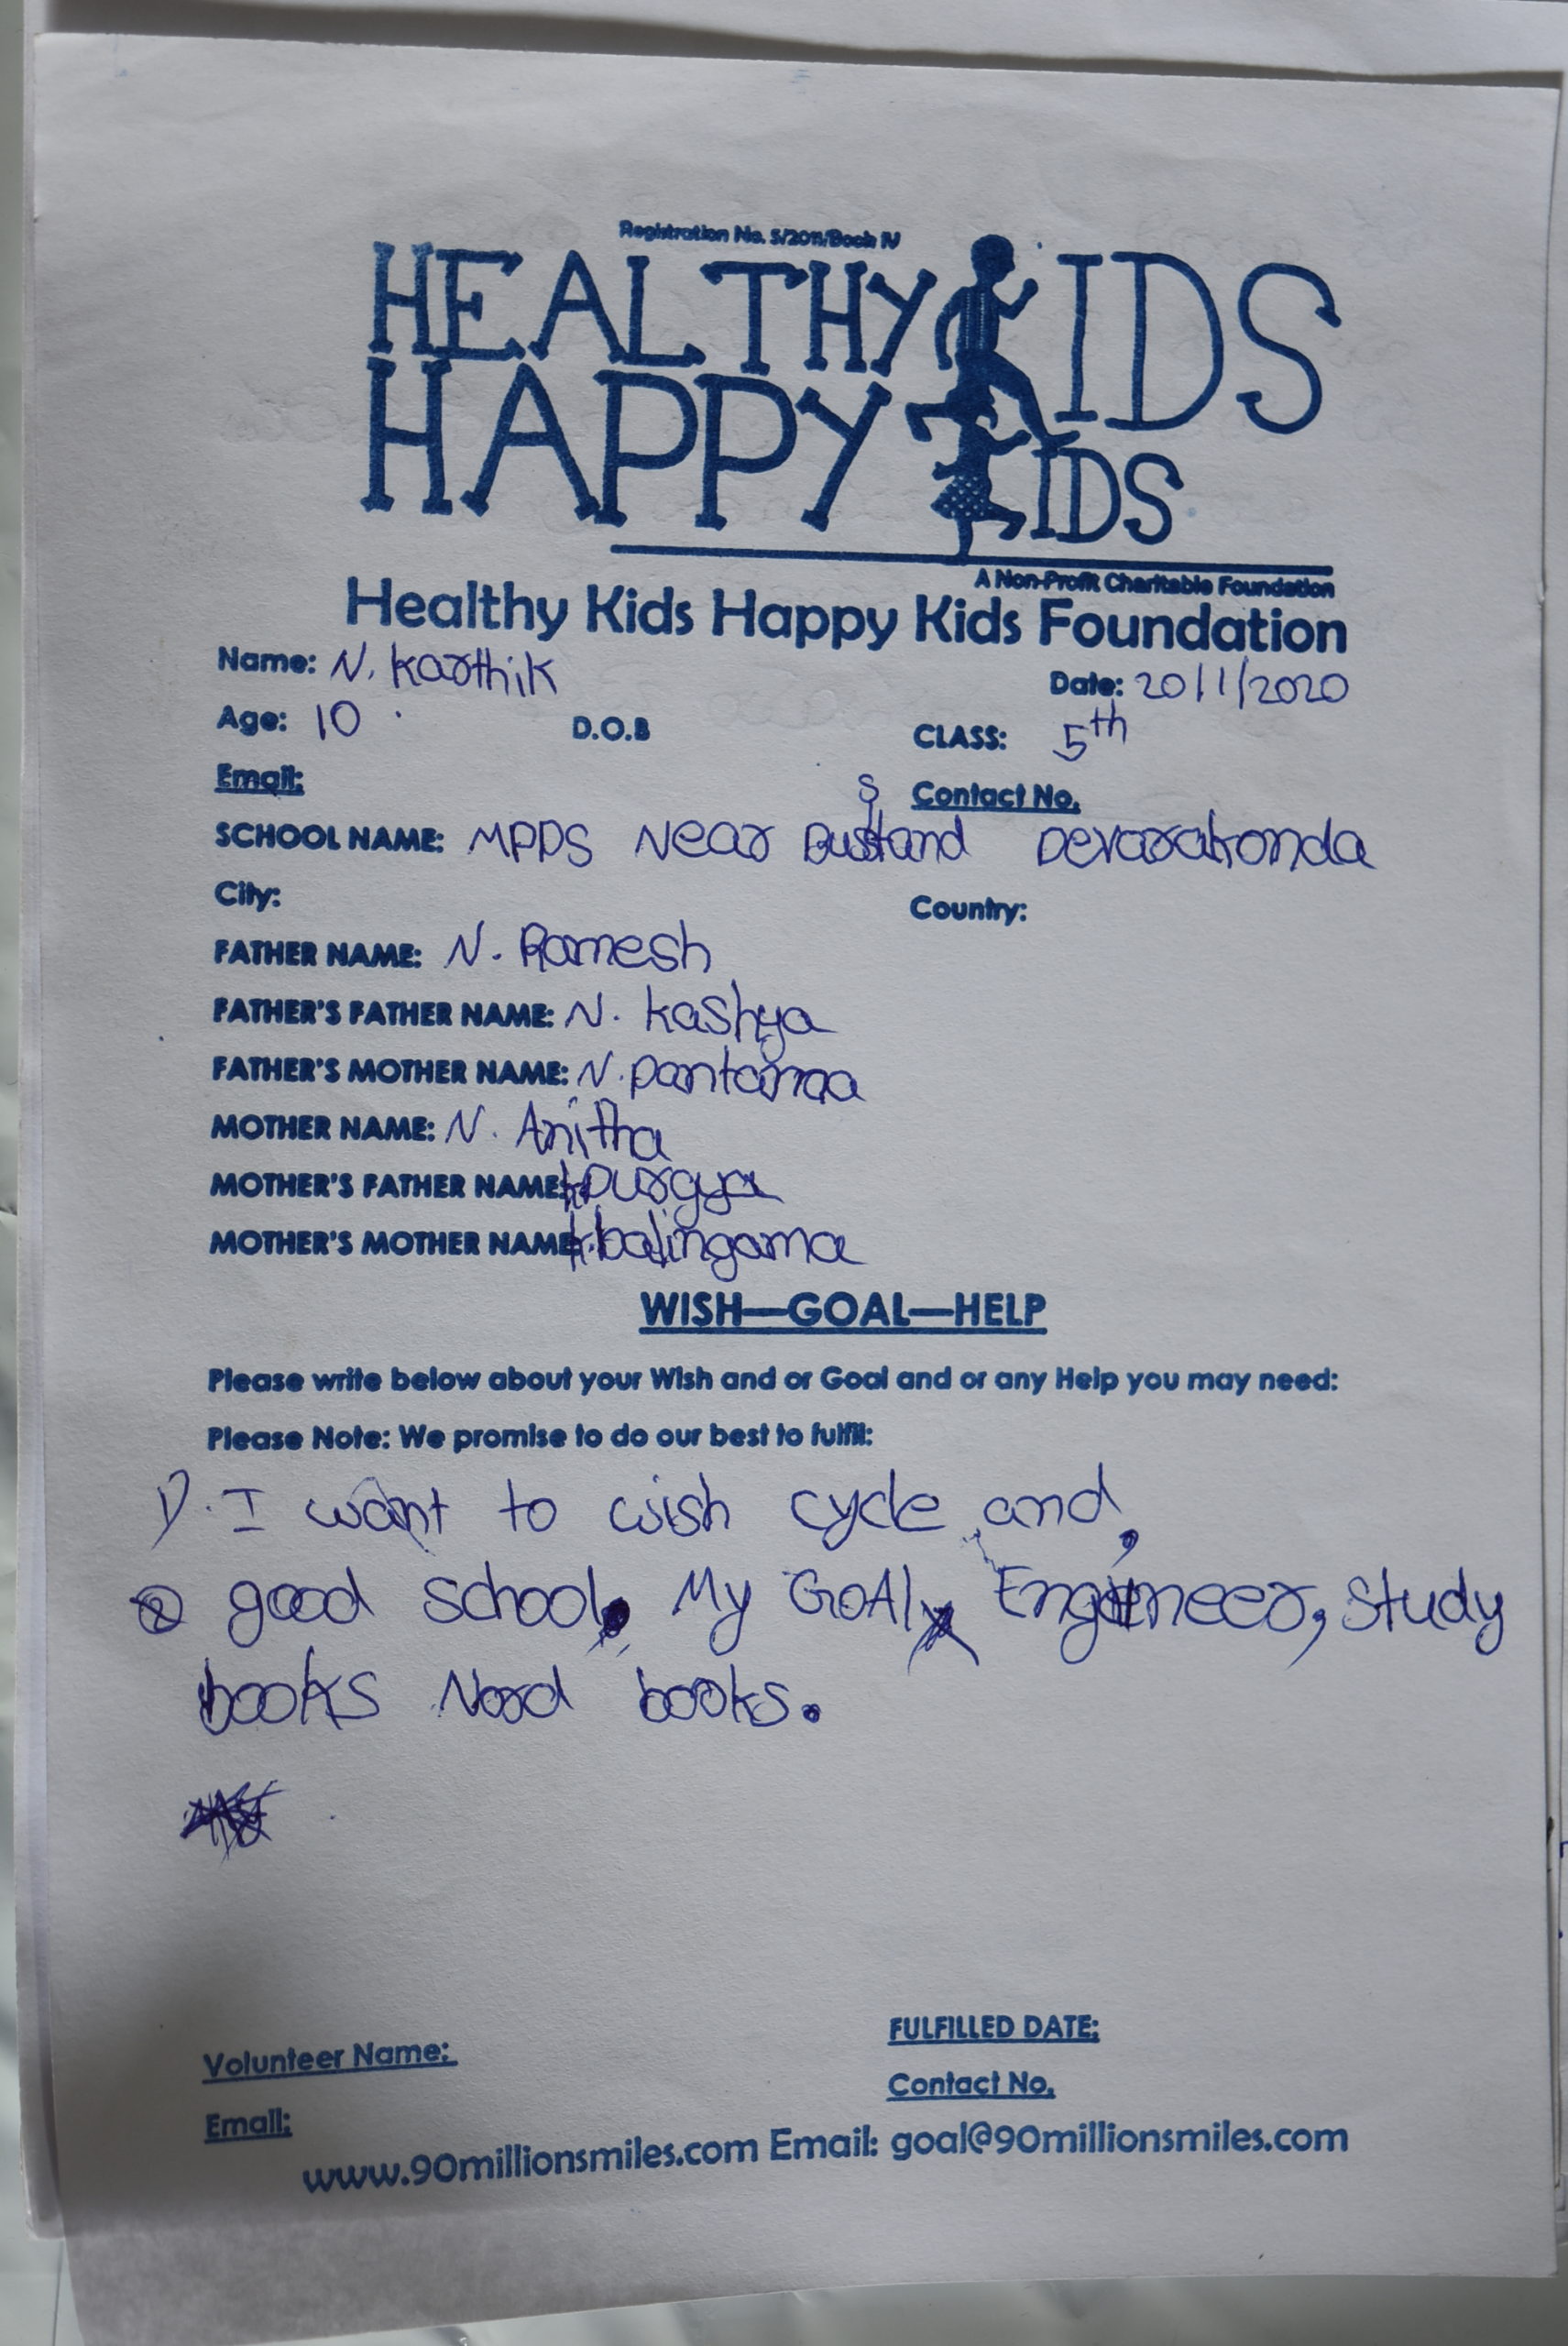 Registration No. 5/2011/Book IV
HEALTHY KIDS
HAPPY KIDS
A Non-Profit Charitable Foundation
Healthy Kids Happy Kids Foundation
Name: N. Karthik
Date: 20/1/2020
Age: 10 D.O.B CLASS: 5th
Email: Contact No.
SCHOOL NAME: MPPS Near Busstand Devarakonda
City: Country:
FATHER NAME: N. Ramesh
FATHER'S FATHER NAME: N. Kashya
FATHER'S MOTHER NAME: N.
MOTHER NAME: N. Anitha
MOTHER'S FATHER NAME:
MOTHER'S MOTHER NAME: balingama
WISH—GOAL—HELP
Please write below about your Wish and or Goal and or any Help you may need:
Please Note: We promise to do our best to fulfil:
1). I want to wish cycle and,
good school, My GOAl Engineer, study
books books.
FULFILLED DATE:
Volunteer Name:
Contact No.
Email:
www.90millionsmiles.com Email: goal@90millionsmiles.com